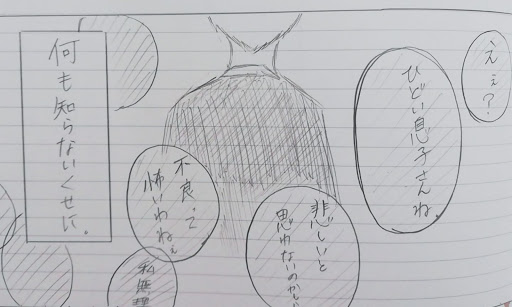 えぇ?
ひどい息子さんね。
悲しいと
思わないのかしら
不良って
怖いわねぇ
私無理
何も知らないくせに。